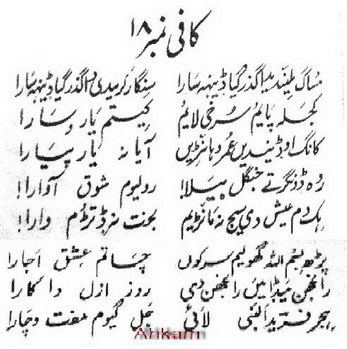 کافی نمبر ۱۸
مساگ ملیندیں دا گذر گیا ڈینہہ سارا سنگار کریندی دا گذر گیا ڈینہہ سارا
کجلہ پایم سرخی لایم کیتم یار وسارا
کانگ اڈیندیں عمر وہانڑیں آیا نہ یار پیارا
رہ ڈونگر تے جنگل بیلا! رولیوم شوق آوارا!
ہک دم عیش دی سیج نہ مانڑیم بخت نہ ڈتڑم وارا!
پڑھ بسم اللہ گھولیم سر کوں چاتم عشق اجارا
رانجھن میڈا میں رانجھن دی روز ازل دا کارا
ہجر فرید النبی لائی جل گیوم مفت وچارا
Ahkam